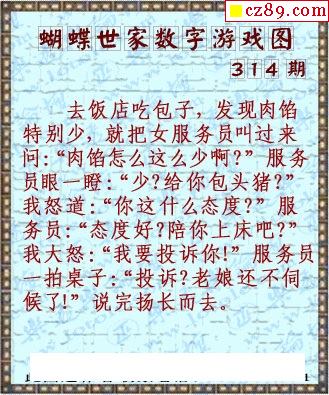 cz89.com
蝴蝶世家数字游戏图
314期
去饭店吃包子，发现肉馅
特别少，就把女服务员叫过来
问：“肉馅怎么这么少啊？”服务
员眼一瞪：“少？给你包头猪？”
我怒道：“你这什么态度？”服
务员：“态度好？陪你上床吧？”
我大怒：“我要投诉你！”服务员
一拍桌子：“投诉？老娘还不伺
候了！”说完扬长而去。